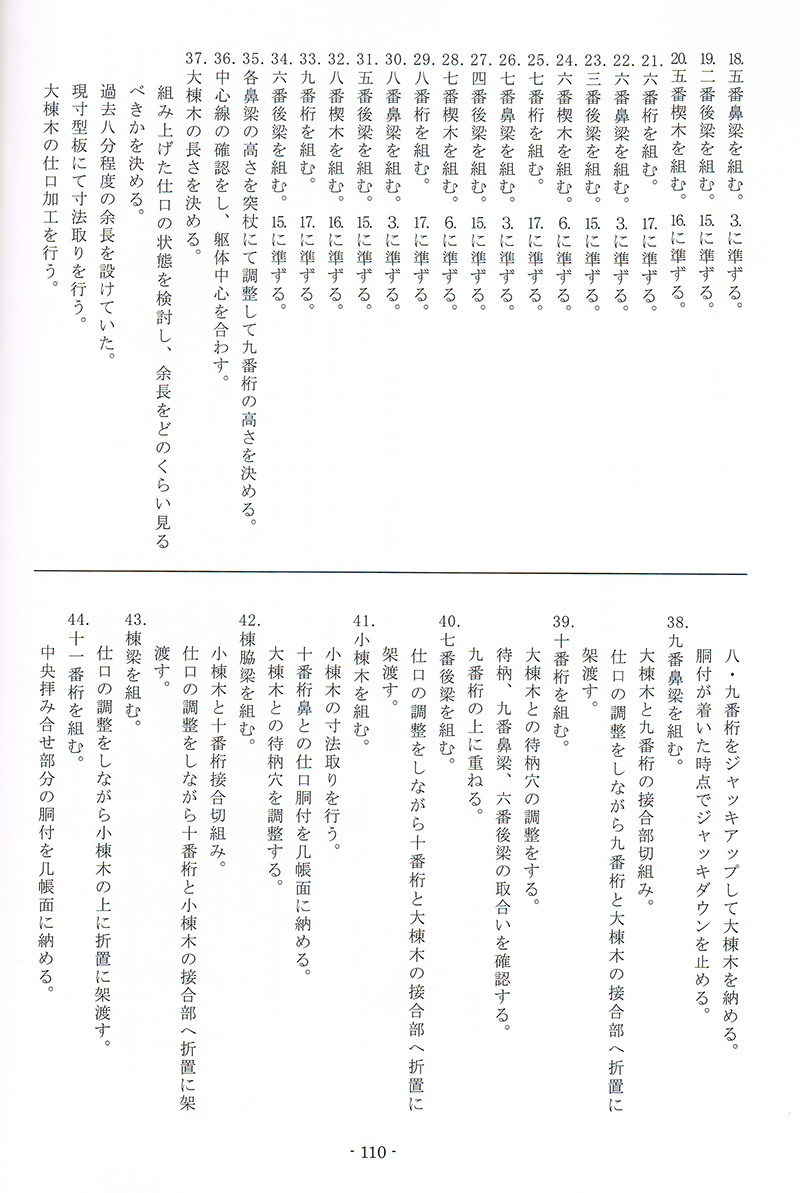 18. 五番鼻梁を組む。 3.に準ずる。
19. 二番後梁を組む。 15.に準ずる。
20. 五番楔木を組む。 16.に準ずる。
21. 六番桁を組む。 17.に準ずる。
22. 六番鼻梁を組む。 3.に準ずる。
23. 三番後梁を組む。 15.に準ずる。
24. 六番楔木を組む。 6.に準ずる。
25. 七番桁を組む。 17.に準ずる。
26. 七番鼻梁を組む。 3.に準ずる。
27. 四番後梁を組む。 15.に準ずる。
28. 七番楔木を組む。 6.に準ずる。
29. 八番桁を組む。 17.に準ずる。
30. 八番鼻梁を組む。 3.に準ずる。
31. 五番後梁を組む。 15.に準ずる。
32. 八番楔木を組む。 16.に準ずる。
33. 九番桁を組む。 17.に準ずる。
34. 六番後梁を組む。 15.に準ずる。
35. 各鼻梁の高さを突杖にて調整して九番桁の高さを決める。
36. 中心線の確認をし、躯体中心を合わす。
37. 大棟木の長さを決める。
組み上げた仕口の状態を検討し、余長をどのくらい見る
べきかを決める。
過去八分程度の余長を設けていた。
現寸型板にて寸法取りを行う。
大棟木の仕口加工を行う。
八・九番桁をジャッキアップして大棟木を納める。
胴付が着いた時点でジャッキダウンを止める。
38. 九番鼻梁を組む。
大棟木と九番桁の接合部切組み。
仕口の調整をしながら九番桁と大棟木の接合部へ折置に
架渡す。
39. 十番桁を組む。
大棟木との待枘穴の調整をする。
待枘、九番鼻梁、六番後梁の取合いを確認する。
九番桁の上に重ねる。
40. 七番後梁を組む。
仕口の調整をしながら十番桁と大棟木の接合部へ折置に
架渡す。
41. 小棟木を組む。
小棟木の寸法取りを行う。
十番桁鼻との仕口胴付を几帳面に納める。
大棟木との待枘穴を調整する。
42. 棟脇梁を組む。
小棟木と十番桁接合切組み。
仕口の調整をしながら十番桁と小棟木の接合部へ折置に架
渡す。
43. 棟梁を組む。
仕口の調整をしながら小棟木の上に折置に架渡す。
44. 十一番桁を組む。
中央拝み合せ部分の胴付を几帳面に納める。
- 110 -